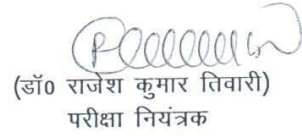 (डॉ0 राजेश कुमार तिवारी)
परीक्षा नियंत्रक